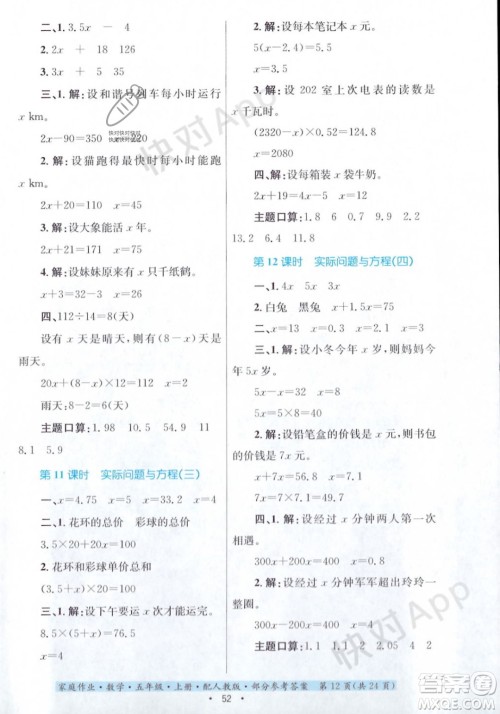 二、1. 3.5x －4
2. 2x ＋ 18 126
3. x ＋ 15
三、1. 解：设和谐号列车每小时运行
x km。
2x－90＝350 x＝220
2. 解：设猫跑得最快时每小时能跑
x km。
2x＋20＝110 x＝45
3. 解：设大象能活 x 年。
4. 解：设妹妹原来有 x 只千纸鹤。
x＋10＝32 x＝22
四、112÷14＝8(天)
设有 x 天是晴天，则有(8－x)天是
雨天。
20x＋(8－x)×12＝112 x＝2
雨天：8－x＝8－2＝6
主题口算：1.98 10 54.9 11
8.1 5.9
第 11 课时 实际问题与方程(三)
一、x＝4.75 x＝15 x＝4
二、1. 花环的总价 彩球的总价
3.5×20＋20x＝100
2. 花环和彩球的单价和
(3.5＋x)×20＝100
三、1. 解：设运 x 次才能运完。
(4.5＋5)x＝76 x＝8
2. 解：设每本笔记本 x 元。
5(x－2.4)＝8 x＝4
x＝4.5
3. 解：设 202 室上次电表的读数是
x 千瓦时。
(2320－x)×0.5＝120
x＝2080
四、解：设每箱装 x 袋牛奶。
主题口算：1.8 6 0.7 4
13.2 6.4 11.8
第 12 课时 实际问题与方程(四)
一、1. 4x 5x 3x
2. 白兔 黑兔 x＋3x＝16
二、x＝4 x＝5 x＝0.9
三、1. 解：设小冬今年 x 岁，则妈妈今
年 5x 岁。
5x－x＝32 x＝8
5x＝5×8＝40
2. 解：设铅笔盒的价钱是 x 元，则书
包的价钱是 7x 元。
7x－x＝72 x＝12
7x＝7×12＝84
四、1. 解：设经过 x 分钟两人第一次
相遇。
300x＋200x＝400 x＝0.8
2. 解：设经过 x 分钟军军超出玲玲一
整圈。
300x－200x＝400 x＝4
家庭作业·数学·五年级·上册·配人教版·部分参考答案 第 12 页(共 24 页)
52
快对App
快对App
快对App
快对App
答案圈
MXQE.COM